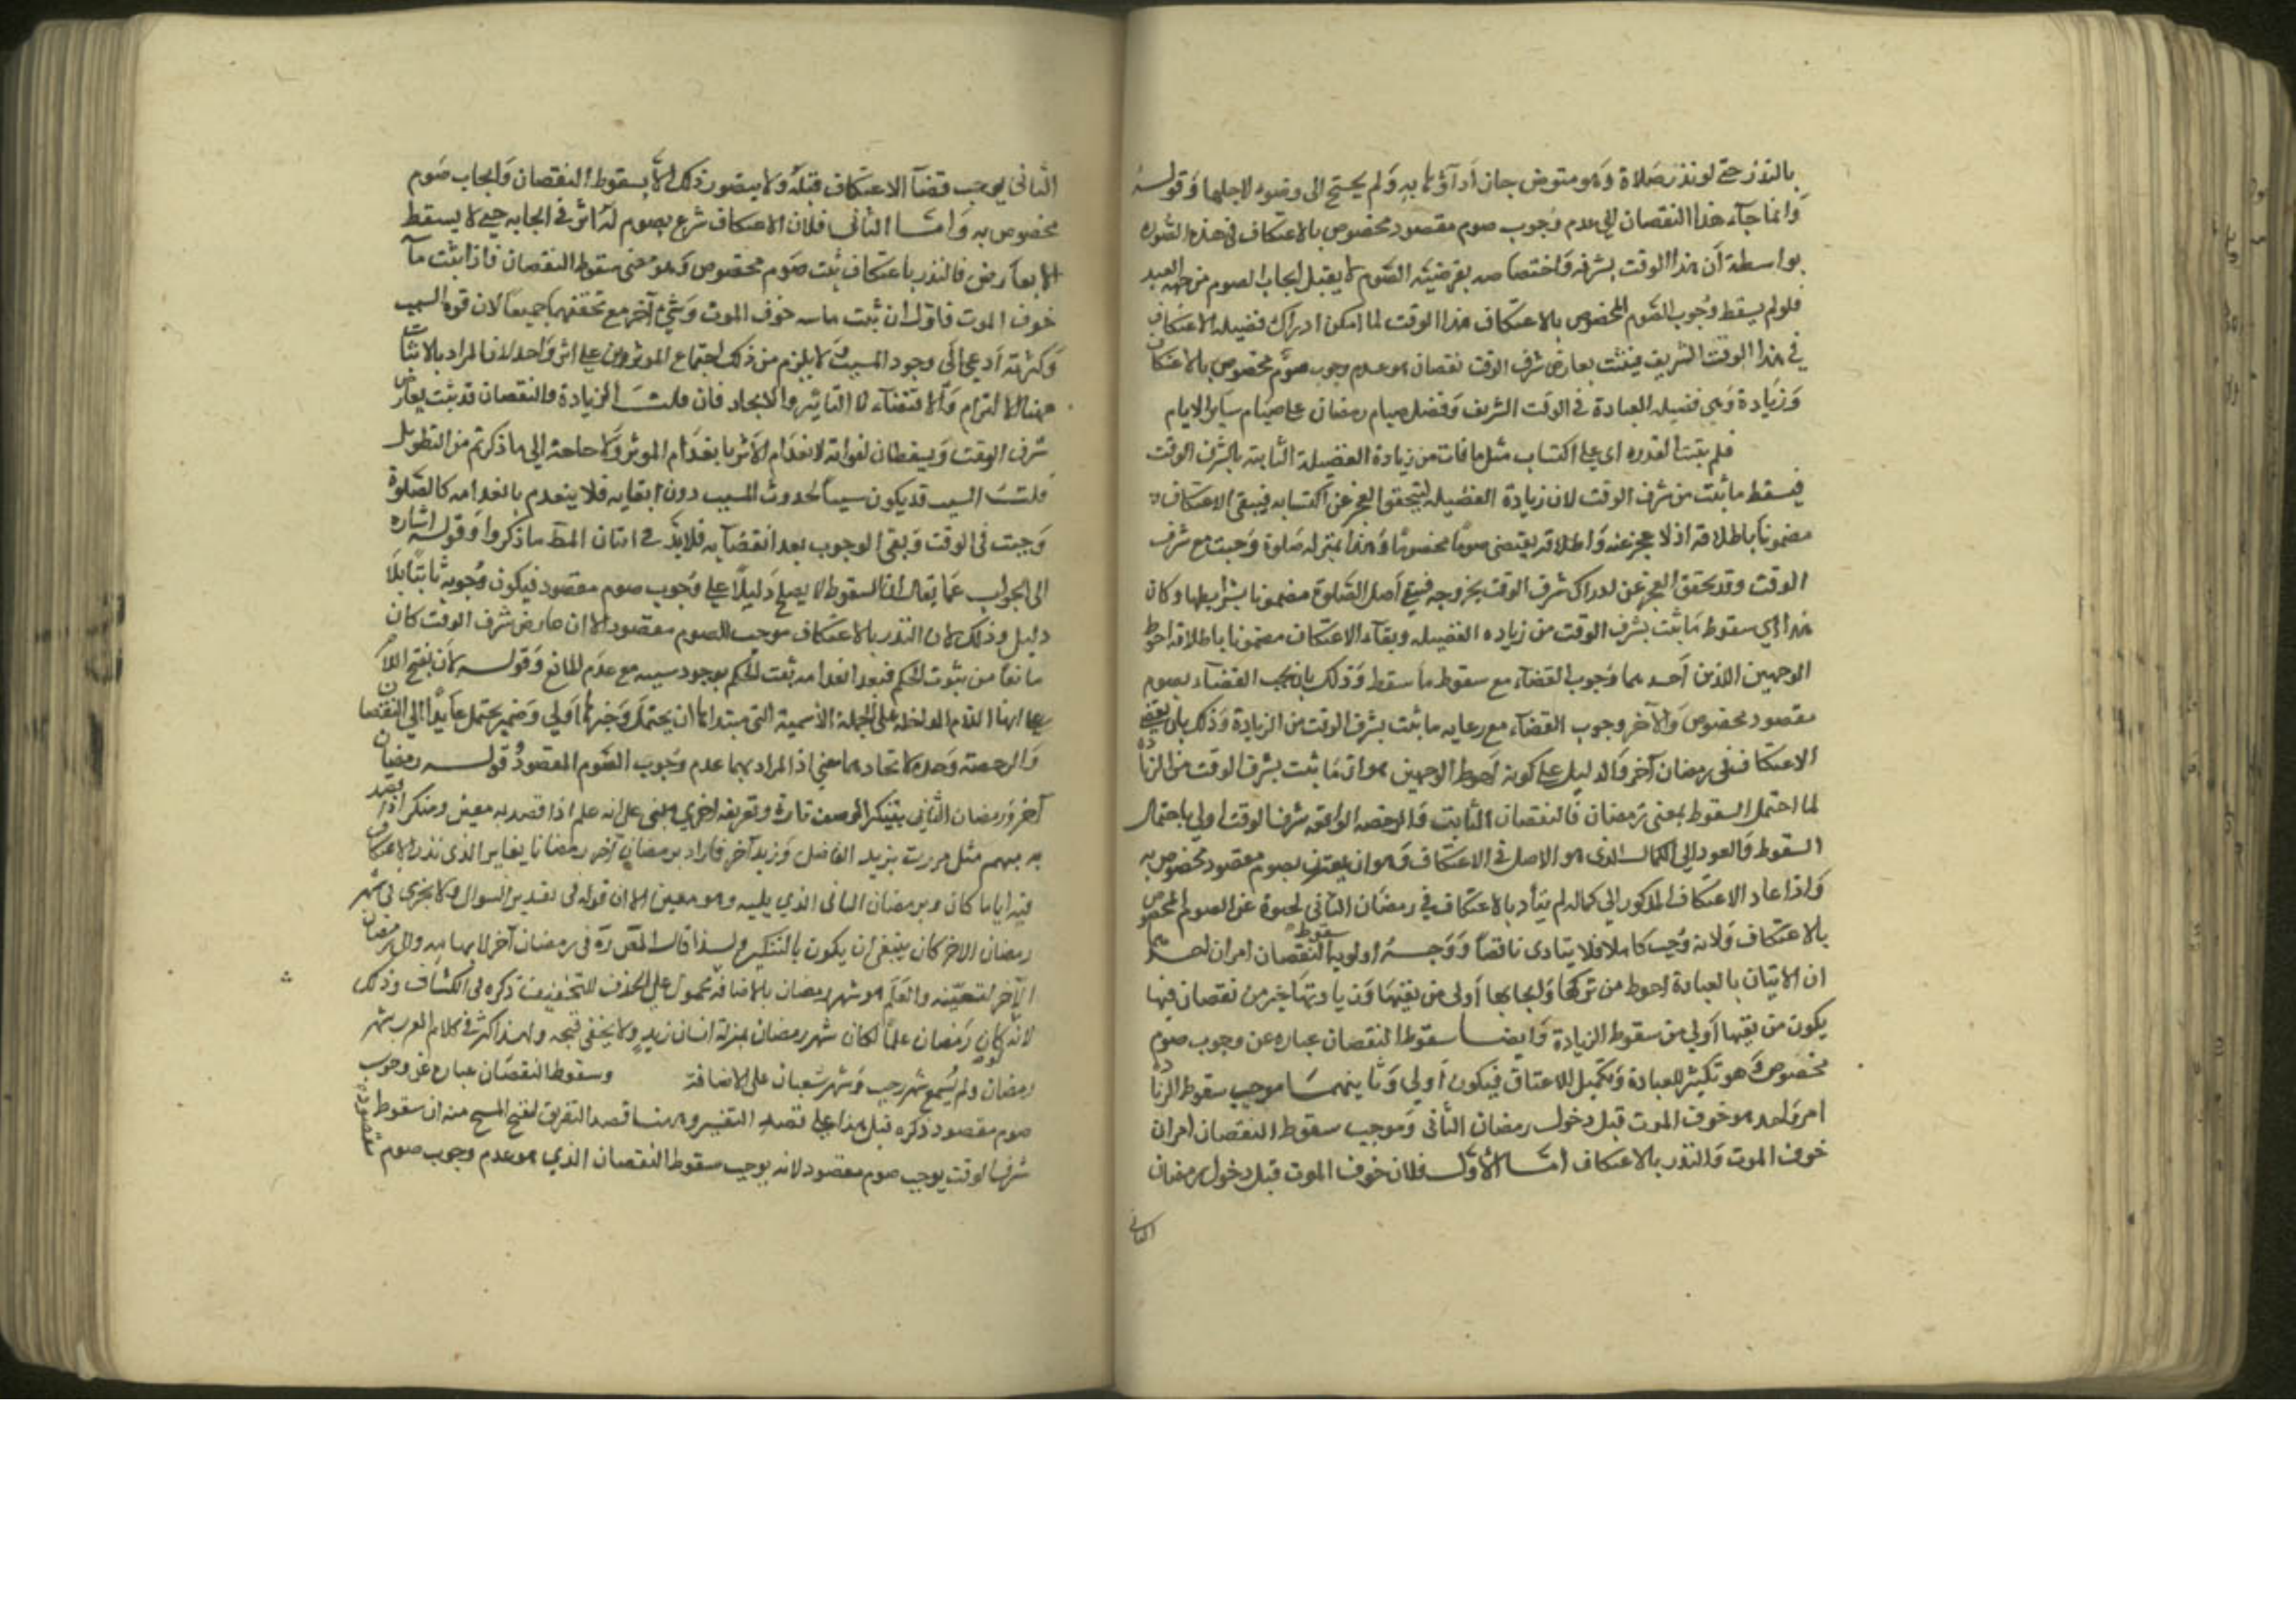 بالنذر حتى لو نذر صلاة وهو متوض جاز اداؤها به ولم يحتج الى وضوء لاجلها وقوله
وانما جاء هذا النقصان اي عدم وجوب صوم مقصود مخصوص بالاعتكاف في هذه الصوره
بواسطة ان هذا الوقت بشرفه واختصاصه بفرضية الصوم لا يقبل ايجاب الصوم من جهه العبد
فلو لم يسقط وجوب الصوم المخصوص بالاعتكاف هذا الوقت لما امكن ادراك فضيله الاعتكاف
في هذا الوقت الشريف فيثبت بعارض شرف الوقت نقصان هو عدم وجوب صوم مخصوص بالاعتكاف
وزيادة وهي فضيله العبادة في الوقت الشريف وفضل صيام رمضان على صيام ساير الايام
فلم يثبت القدره اي على اكتساب مثل ما فات من زيادة الفضيلة الثابته بشرف الوقت
فيسقط ما ثبت من شرف الوقت لان زيادة الفضيله ليتحقق العجز عن اكتسابه فيبقى الاعتكاف
مضمونا باطلاقه اذ لا عجز عنه واطلاقه يقتضى صوما مخصوصا وهذا بمنزله صلوة وجبت مع شرف
الوقت وقد تحقق العجز عن ادراك شرف الوقت بخروجه فيبقى اصل الصلوة مضمونا بشرايطها وكان
هذا اي سقوط ما ثبت بشرف الوقت من زياده الفضيله وبقاء الاعتكاف مضمونا باطلاقه احوط
الوجهين اللذين احدهما وجوب القضاء مع سقوط ما سقط وذلك بان يجب القضاء بصوم
مقصود مخصوص والآخر وجوب القضاء مع رعايه ما ثبت بشرف الوقت من الزيادة وذلك بان يقضى
الاعتكاف في رمضان آخر والدليل على كونه احوط الوجهين هو ان ما ثبت بشرف الوقت من الزيادة
لما احتمل السقوط بمضى رمضان فالنقصان الثابت والرخصه الواقعه بشرف الوقت اولى باحتمال
السقوط والعود الى الكمال الذى هو الاصل في الاعتكاف وهو ان يعترف بصوم مقصود مخصوص به
واذا عاد الاعتكاف المذكور الى كماله لم يتأد بالاعتكاف في رمضان الثانى لخلوه عن الصوم المخصوص
بالاعتكاف ولانه وجب كاملا فلا يتادى ناقصا ووجه اولويه سقوط النقصان امران احدهما
ان الاتيان بالعبادة احوط من تركها وايجابها اولى من نفيها وزيادتها خير من نقصان فيها
يكون من نفيها اولى من سقوط الزيادة وايضا سقوط النقصان عباره عن وجوب صوم
مخصوص وهو تكثير للعبادة وتكميل للاعتكاف فيكون اولى وثانيهما موجب سقوط الزيادة
امر واحد هو خوف الموت قبل دخول رمضان الثانى وموجب سقوط النقصان امران
خوف الموت والنذر بالاعتكاف اما الاول فلان خوف الموت قبل دخول رمضان
الثانى
الثانى يوجب قضاء الاعتكاف قبله ولا يتصور ذلك الا بسقوط النقصان وايجاب صوم
مخصوص به واما الثانى فلان الاعتكاف شرع بصوم له اثر في ايجابه حتى لا يسقط
الا بعارض فالنذر باعتكاف يثبت صوم مخصوص وهو معنى سقوط النقصان فاذا ثبت ما
خوف الموت فاقول ان ثبت خوف الموت وشئ آخر مع تحققهما جميعا لان قوه السبب
وكثرته ادعى الى وجود المسبب ولا يلزم من ذلك اجتماع المؤثرين على اثر واحد لان المراد بالاثبات
ههنا الالتزام والاقتضاء لا التاثير والايجاد فان قلت الزيادة والنقصان قد ثبت بعارض
شرف الوقت ويسقطان لفواته لانعدام الاثر بانعدام المؤثر ولا حاجة الى ما ذكرتم من التطويل
قلت السبب قد يكون سببا لحدوث المسبب دون ابقايه فلا ينعدم بانعدامه كالصلوة
وجبت في الوقت وبقى الوجوب بعد انقضايه فلا بد في اثبات المط ما ذكروا وقوله اشاره
الى الجواب عما يقال ان السقوط لا يصلح دليلا على وجوب صوم مقصود فيكون وجوبه ثابتا بلا
دليل وذلك لان النذر بالاعتكاف موجب للصوم مقصود الا ان عارض شرف الوقت كان
مانعا من ثبوت الحكم فبعد انعدامه ثبت الحكم بوجود سببه مع عدم المانع وقوله لان بفتح اللام
على انها اللام الداخله على الجملة الاسمية التى مبتداها ان يحتمل وخبرها اولى وضمير يحتمل عايد الى النقصان
والرخصة وحده لاتحادهما معنى اذ المراد بهما عدم وجوب الصوم المقصود قوله رمضان
آخر ورمضان الثانى بتنكير الوصف تارة وتعريفه اخرى مبنى على انه علم اذا قصد به معين ومنكر اذا قصد
به مبهم مثل مررت بزيد الفاضل وزيد آخر فاراد برمضان آخر رمضانا يغاير الذى نذر الاعتكاف
فيه ايا ما كان وبرمضان الثانى الذي يليه وهو معين الا ان قوله فى تقدير السوال ولا يجزى فى شهر
رمضان الاخر كان ينبغى ان يكون بالتنكير ولذا قال المصـ ره فى رمضان آخر لابهامه والى رمضان
الآخر لتعينه والعلم هو شهر رمضان بالاضافه محمول على الحذف للتخفيف ذكره فى الكشاف وذلك
لانه لو كان رمضان علما لكان شهر رمضان بمنزلة انسان زيد ولا يخفى قبحه ولهذا كثر في كلام العرب شهر
رمضان ولم يسمع شهر رجب وشهر شعبان على الاضافة وسقوط النقصان عبارة عن وجوب
صوم مقصود ذكره قبل هذا على قصد التفسير وههنا قصد التفريق ان سقوط
شرف الوقت يوجب صوم مقصود لانه يوجب سقوط النقصان الذي هو عدم وجوب صوم مقصود